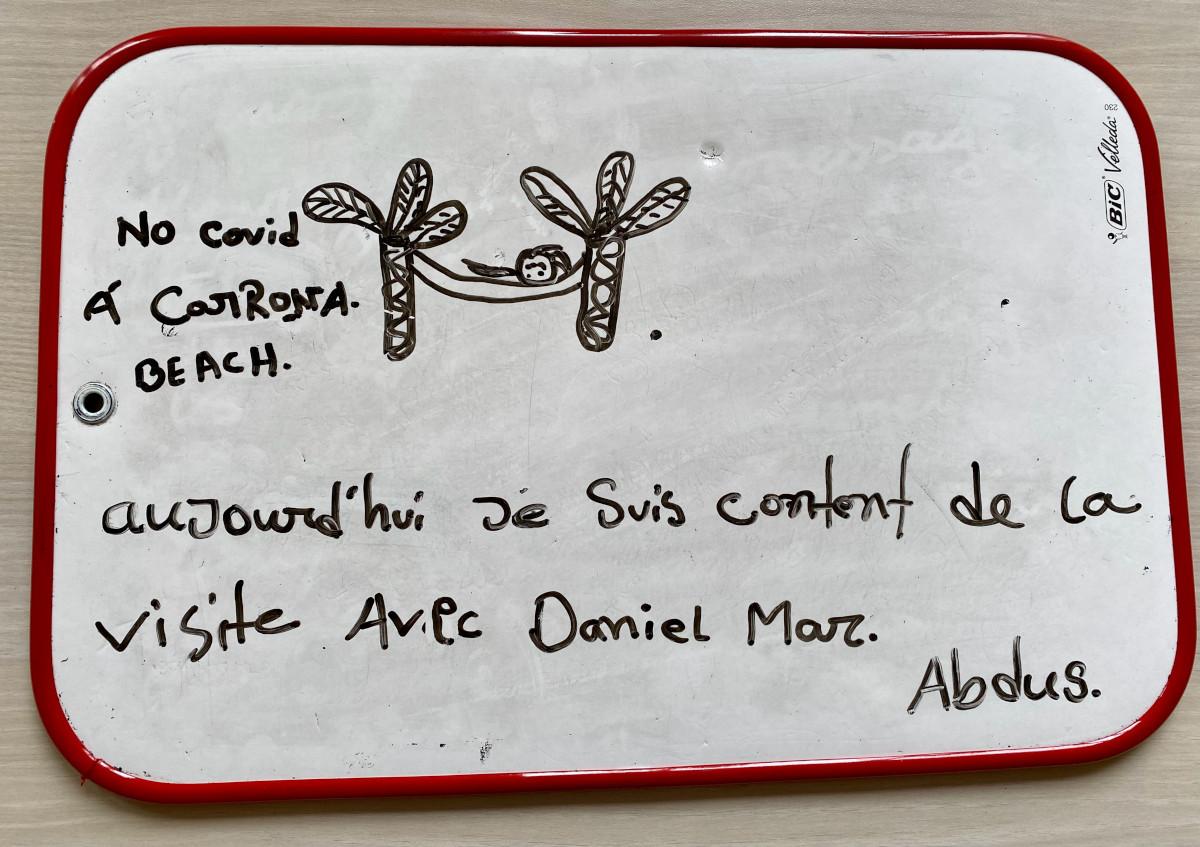 No covid
Á CorRoNA.
BEACH.
aujourd'hui Je Suis content de la
visite Avec Daniel Mar.
Abdus.
BIC Velleda® 230